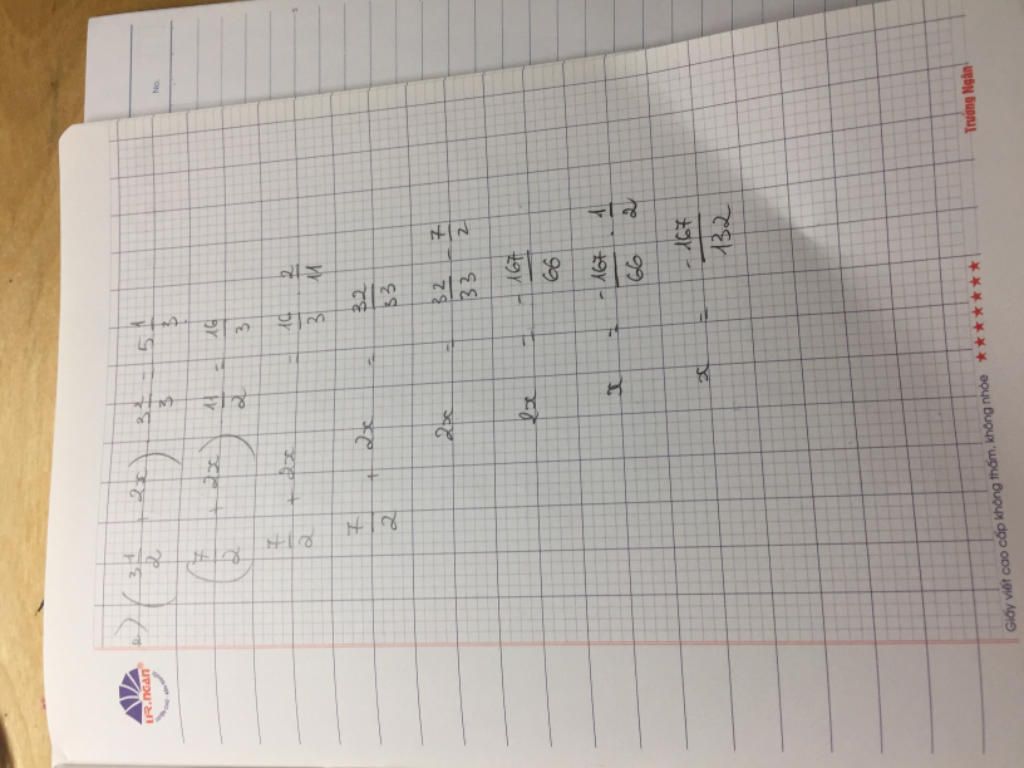 No.
TR.NGAN®
a) (3 1/2 + 2x) . 3 2/3 = 5 1/3
(7/2 + 2x) . 11/2 = 16/3
7/2 + 2x = 16/3 . 2/11
7/2 + 2x = 32/33
2x = 32/33 - 7/2
2x = -167/66
x = -167/66 . 1/2
x = -167/132
Giấy viết cao cấp không thấm, không nhòe ★★★★★★★ Trương Ngân